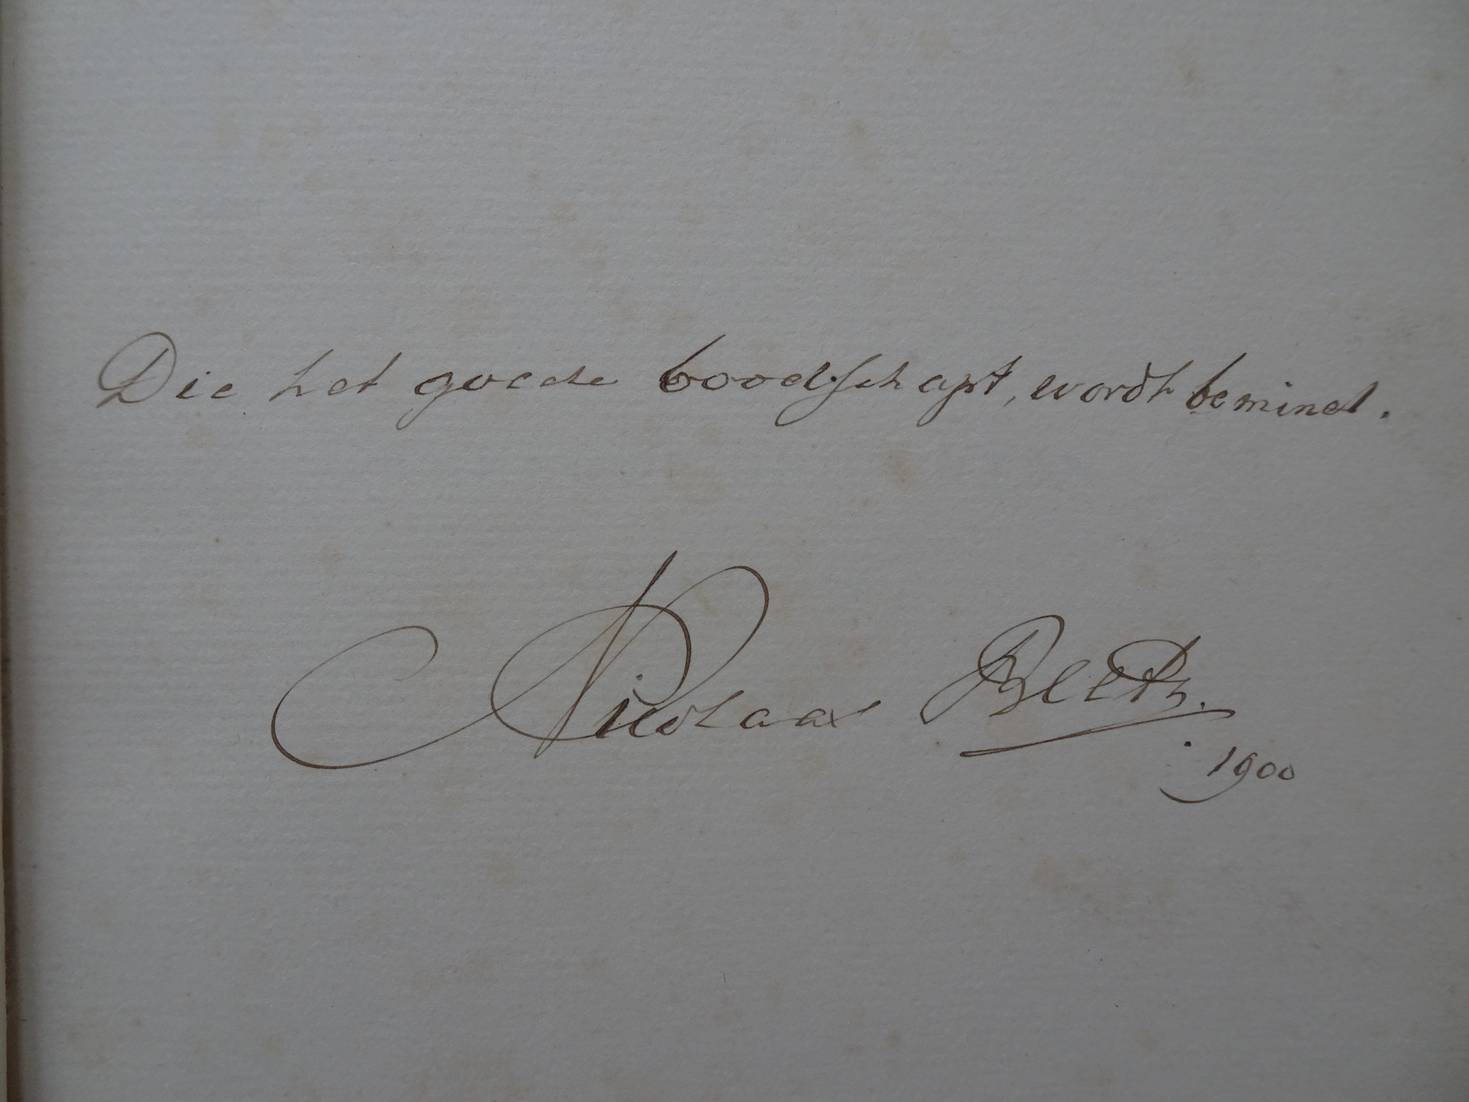 Die het goede boodschapt, wordt bemind.
Nicolaas Beets.
1900